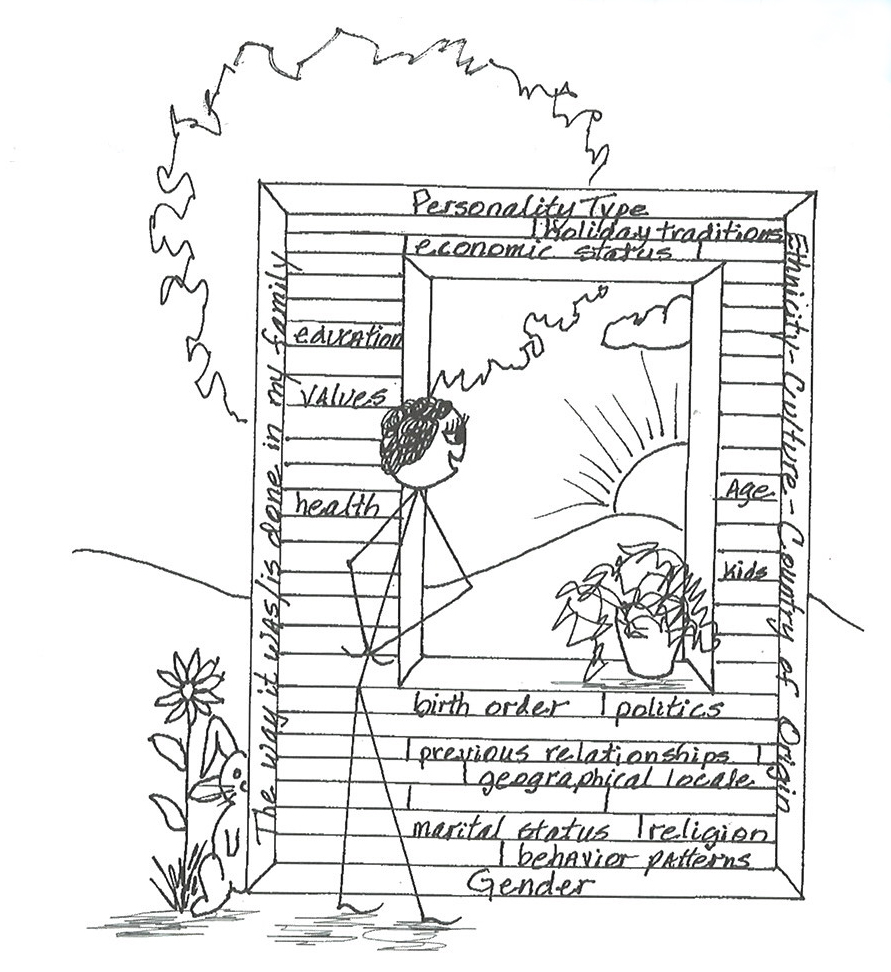 Personality Type
Holiday traditions
economic status
The way it was/is done in my family
Ethnicity - Culture - Country of Origin
education
VALUES
health
Age
Kids
birth order
politics
previous relationships
geographical locale
marital status
religion
behavior patterns
Gender